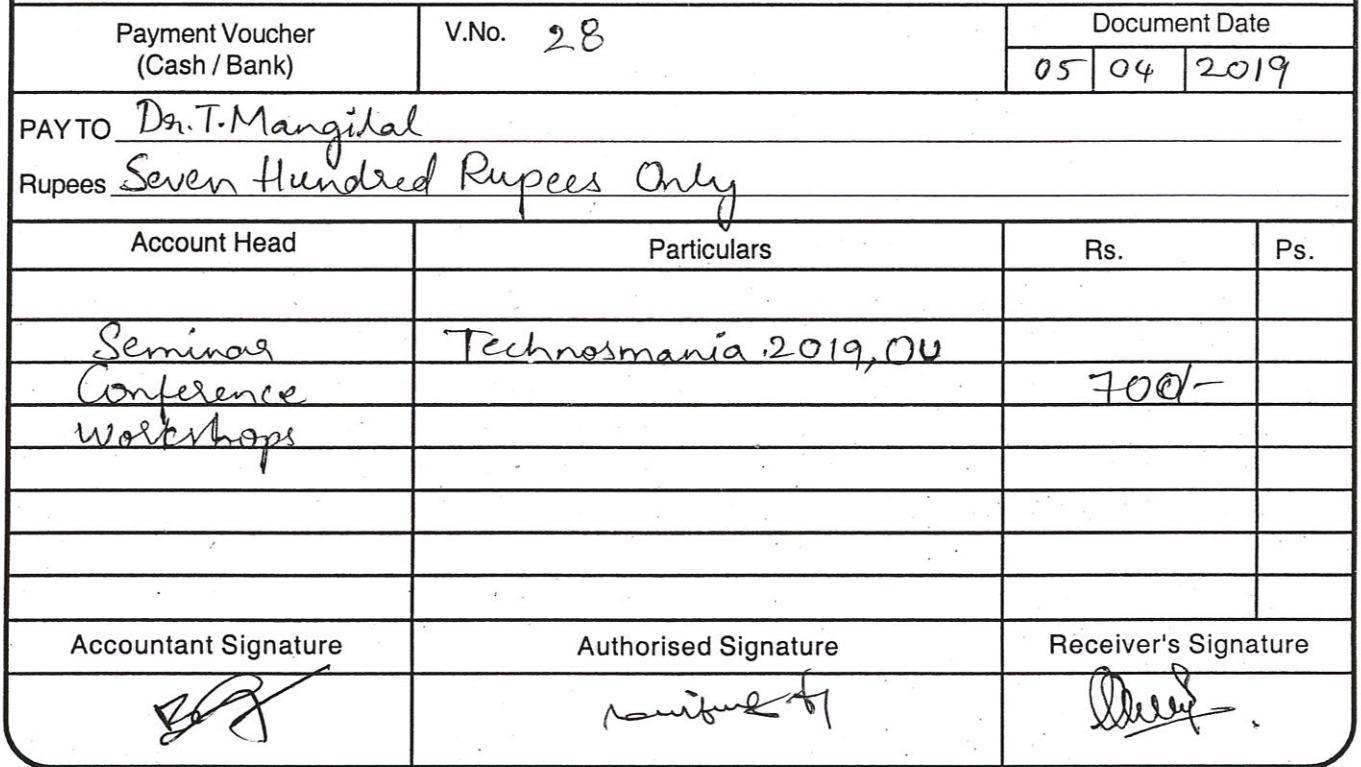 Payment Voucher
(Cash / Bank)
V.No. 28
Document Date
05 04 2019
PAY TO Dr. T. Mangilal
Rupees Seven Hundred Rupees Only
Account Head Particulars Rs. Ps.
Seminar Technosmania .2019, OU
Conference 700/-
Workshops
Accountant Signature Authorised Signature Receiver's Signature